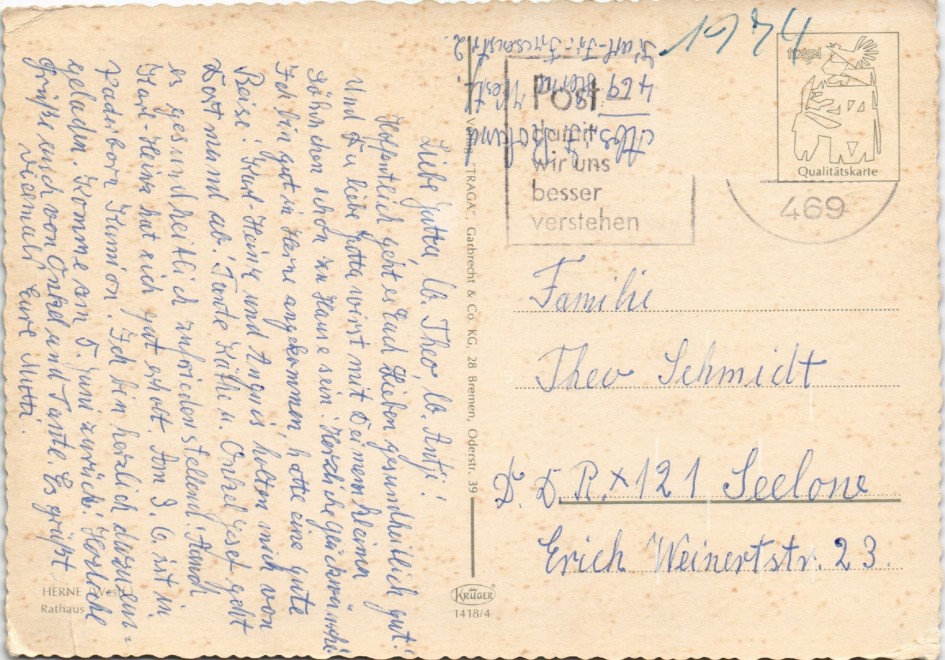 Liebe Jutta, lb. Theo, lb. Antje!
Hoffentlich geht es Euch Lieben gesundheitlich gut!
Und Du liebe Jutta wirst mit Deinem kleinen
Söhnchen schon zu Hause sein. Herzliche Glückwünsche
Ich bin gut in Herne angekommen, hatte eine gute
Reise. Karl Heinz und Agnis holten mich von
Dortmund ab. Tante Käthe u. Onkel Josef geht
es gesundheitlich zufriedenstellend. Auch
Karl-Heinz hat sich gut erholt. Am 3. 6. ist in
Paderborn Kommion. Ich bin herzlich dazu ein=
geladen. Komme am 5. Juni zurück. Herzliche
Grüße auch von Onkel und Tante. Es grüßt
vielmals Eure Mutti.
HERNE (Westf.)
Rathaus
Verlag "TRAGA", Garbrecht & Co. KG, 28 Bremen, Oderstr. 39
KRÜGER
1418/4
Abs.
469 Herne Westf.
2.
1974
Post -
damit
wir uns
besser
verstehen
469
Qualitätskarte
Familie
Theo Schmidt
D. D. R. x 121 Seelow
Erich Weinertstr. 23.